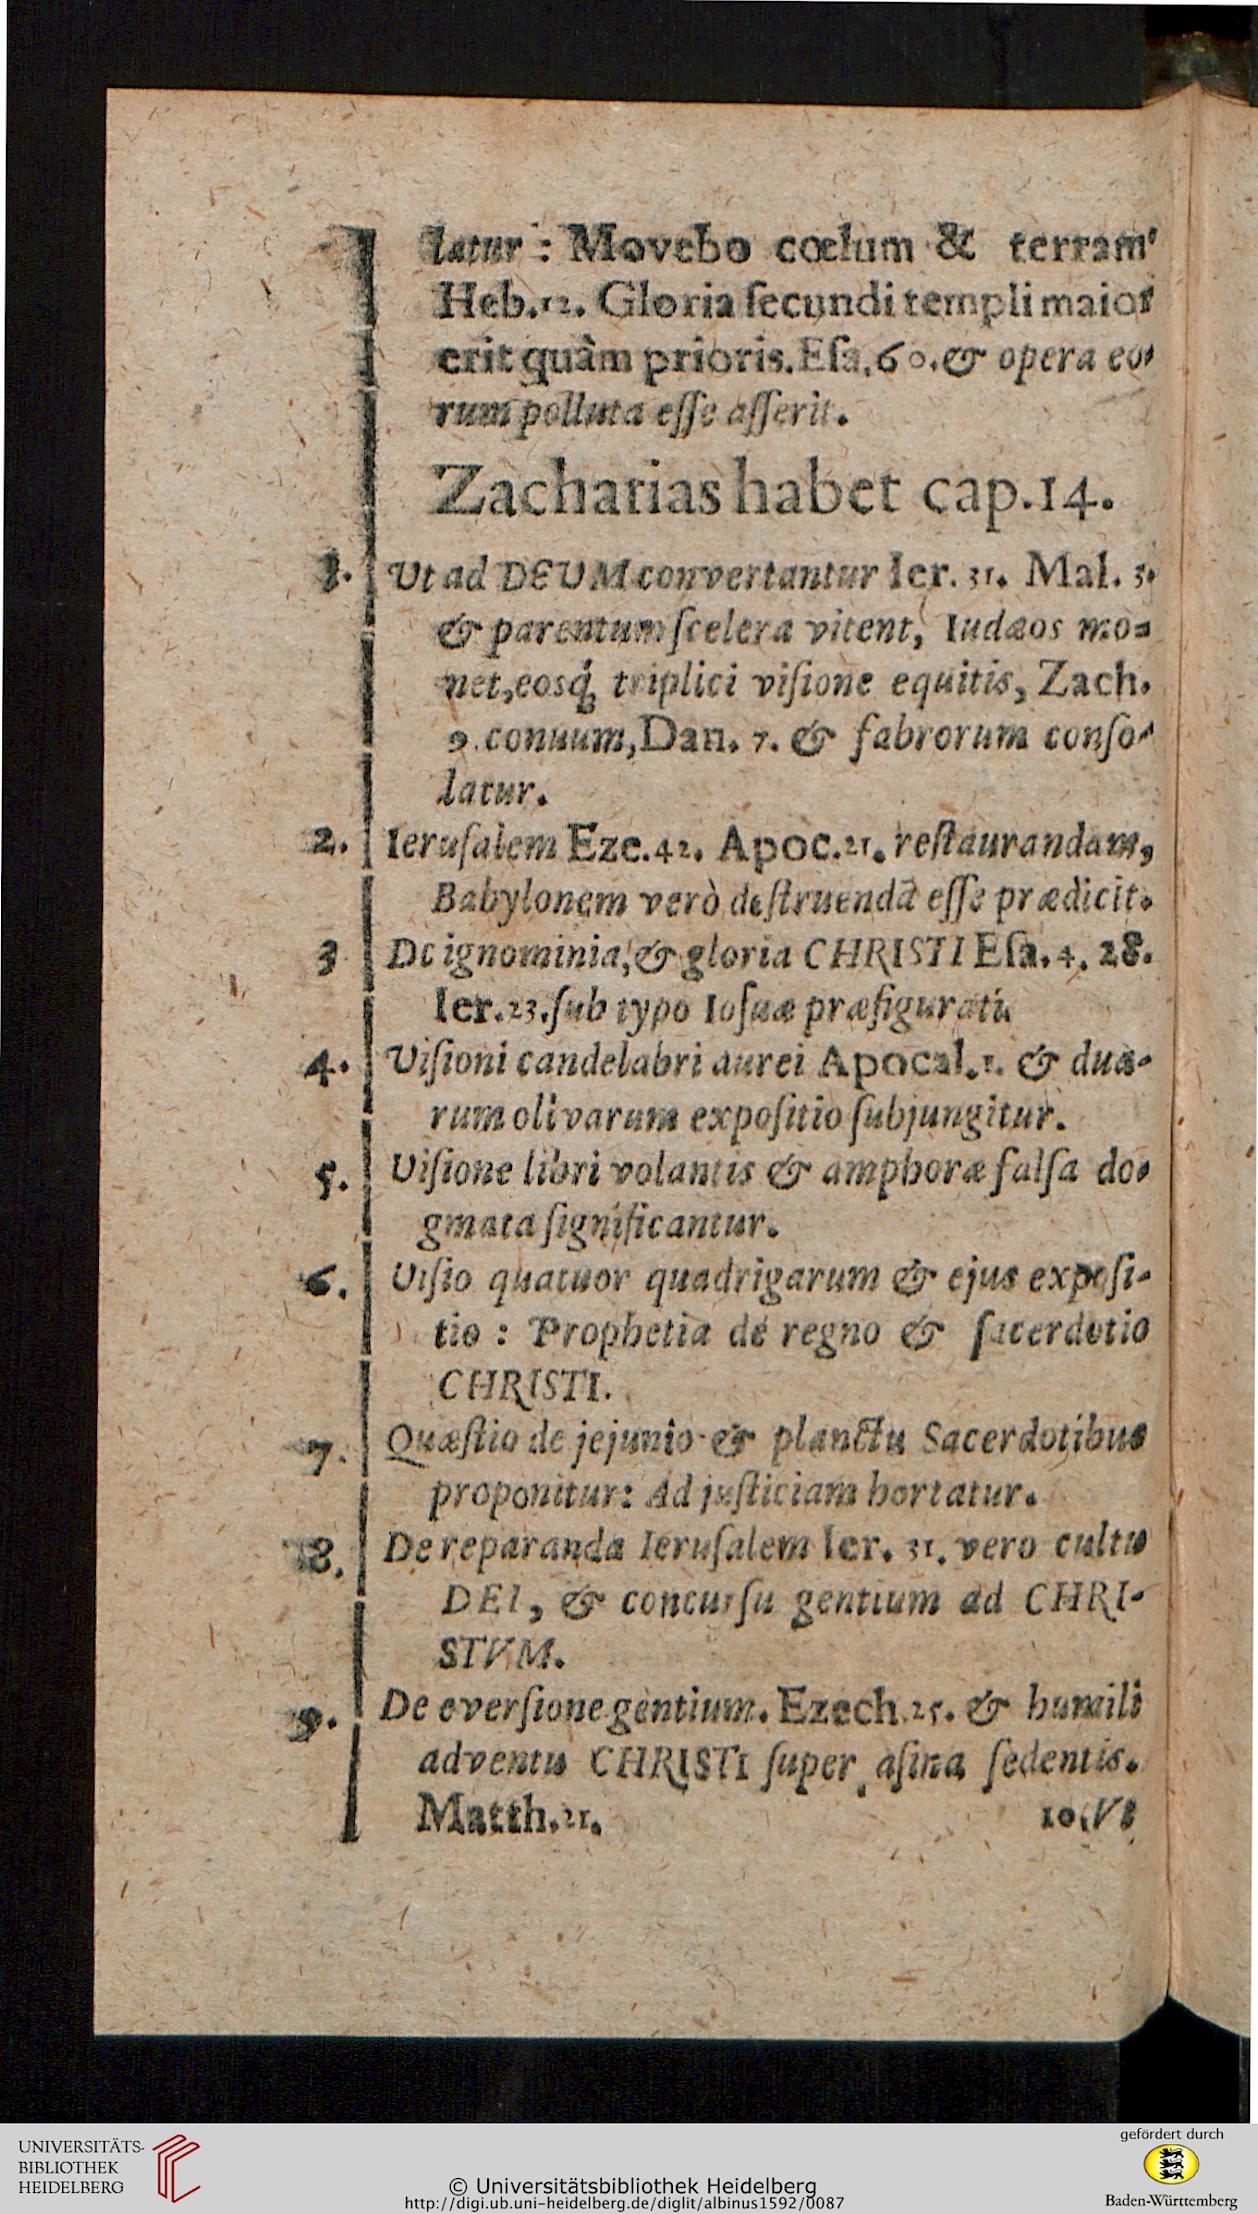 latur : Movebo cœlum & terram'
Heb.12. Gloria ſecundi templi maior
erit quàm prioris. Eſa. 60. & opera eo-
rum polluta eſſe aſſerit.
Zacharias habet cap.14.
1. Ut ad DEUM convertantur Ier. 31. Mal. 3.
& parentum ſcelera vitent, Iudæos mo-
net, eosq́; triplici viſione equitis, Zach.
9. conuum, Dan. 7. & fabrorum conſo-
latur.
2. Ieruſalem Eze.42. Apoc.21. reſtaurandam,
Babylonem verò deſtruendā eſſe prædicit.
3 De ignominia, & gloria CHRISTI Eſa. 4. 28.
Ier.23. ſub typo Ioſuæ præfigurati.
4. Viſioni candelabri aurei Apocal.1. & dua-
rum olivarum expoſitio ſubjungitur.
5. Viſione libri volantis & amphoræ falſa do-
gmata ſignificantur.
6. Viſio quatuor quadrigarum & ejus expoſi-
tio : Prophetia de regno & ſacerdotio
CHRISTI.
7. Quæſtio de jejunio & planctu Sacerdotibus
proponitur: Ad juſticiam hortatur.
8. De reparanda Ieruſalem Ier. 31. vero cultu
DEI, & concurſu gentium ad CHRI-
STVM.
9. De everſione gentium. Ezech.25. & humili
adventu CHRISTI ſuper aſina ſedentis.
Matth.21. 10. Vt
UNIVERSITÄTS-
BIBLIOTHEK
HEIDELBERG
© Universitätsbibliothek Heidelberg
http://digi.ub.uni-heidelberg.de/diglit/albinus1592/0087
gefördert durch
Baden-Württemberg